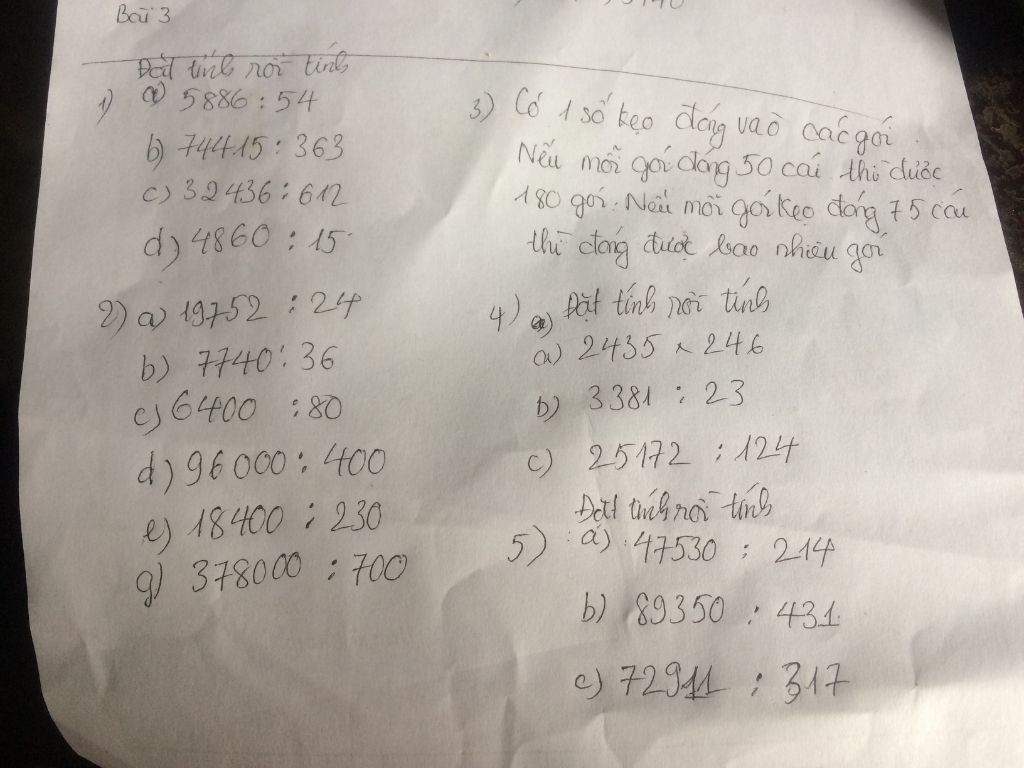 Bài 3
Đặt tính rồi tính
1) a) 5886 : 54
b) 74415 : 363
c) 32436 : 612
d) 4860 : 15
2) a) 19752 : 24
b) 7740 : 36
c) 6400 : 80
d) 96000 : 400
e) 18400 : 230
g) 378000 : 700
3) Có 1 số kẹo đóng vào các gói.
Nếu mỗi gói đóng 50 cái thì được
180 gói. Nếu mỗi gói kẹo đóng 75 cái
thì đóng được bao nhiêu gói
4) Đặt tính rồi tính
a) 2435 x 246
b) 3381 : 23
c) 25172 : 124
Đặt tính rồi tính
5) a) 47530 : 214
b) 89350 : 431
c) 72911 : 317